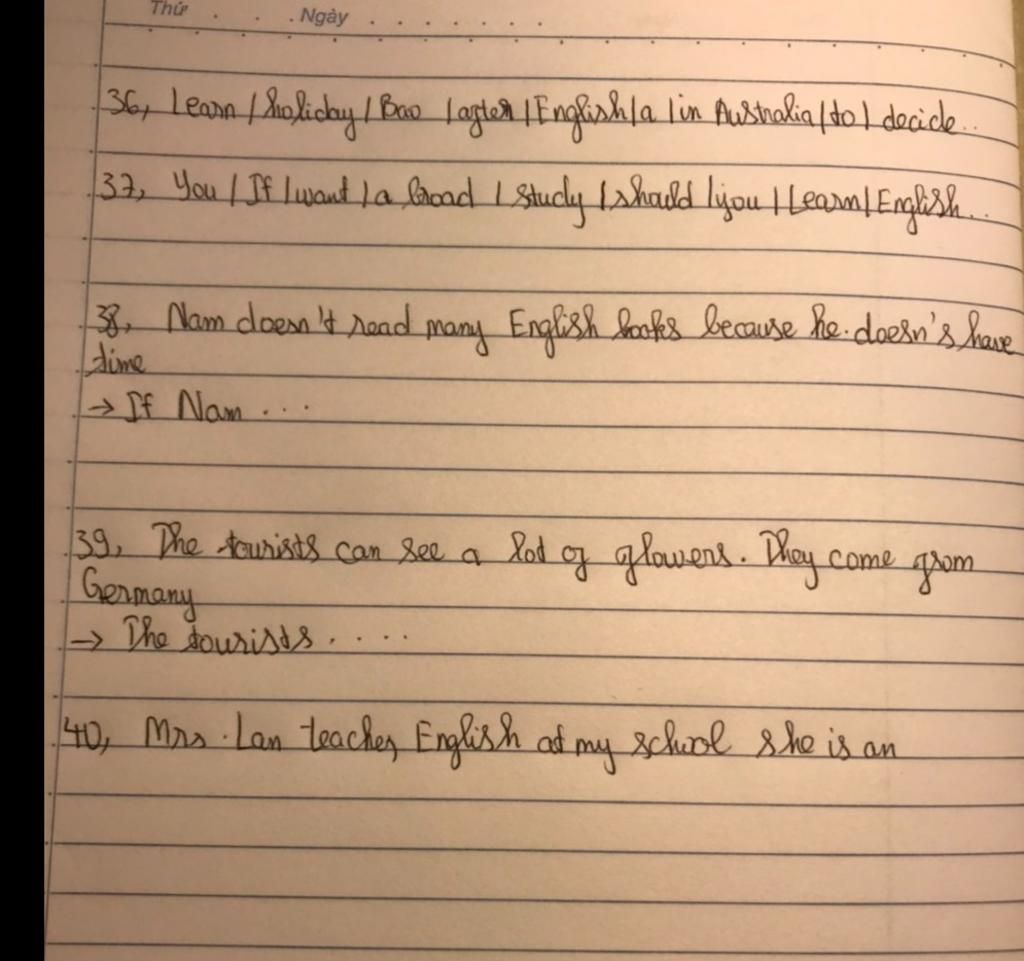 Thứ . . . Ngày . . . . . . . .
36, Learn / holiday / Bao / after / English / a / in Australia / to / decide..
37, You / If / want / a broad / study / should / you / Learn / English...
38, Nam doesn't read many English books because he doesn's have
time
→ If Nam ...
39, The tourists can see a lot of flowers. They come from
Germany
→ The tourists. ....
40, Mrs. Lan teaches English at my school she is an